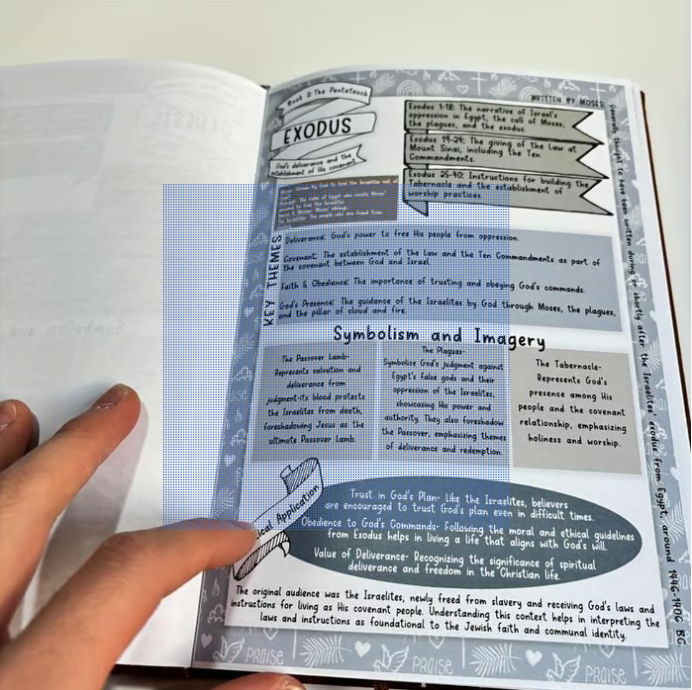 Book 2: The Pentateuch
EXODUS
God's deliverance and the
establishment of His covenant
WRITTEN BY MOSES
Exodus 1-18: The narrative of Israel's
oppression in Egypt, the call of Moses,
the plagues, and the exodus
Exodus 19-24: The giving of the Law at
Mount Sinai, including the Ten
Commandments.
Exodus 25-40: Instructions for building the
Tabernacle and the establishment of
worship practices.
KEY THEMES
Deliverance: God's power to free His people from oppression.
Covenant: The establishment of the Law and the Ten Commandments as part of
the covenant between God and Israel.
Faith & Obedience: The importance of trusting and obeying God's commands.
God's Presence: The guidance of the Israelites by God through Moses, the plagues,
and the pillar of cloud and fire.
Symbolism and Imagery
The Passover Lamb-
Represents salvation and
deliverance from
judgment-its blood protects
the Israelites from death,
foreshadowing Jesus as the
ultimate Passover Lamb.
The Plagues-
Symbolize God's judgment against
Egypt's false gods and their
oppression of the Israelites,
showcasing His power and
authority. They also foreshadow
the Passover, emphasizing themes
of deliverance and redemption.
The Tabernacle-
Represents God's
presence among His
people and the covenant
relationship, emphasizing
holiness and worship.
ical Application
Trust in God's Plan- Like the Israelites, believers
are encouraged to trust God's plan even in difficult times.
Obedience to God's Commands- Following the moral and ethical guidelines
from Exodus helps in living a life that aligns with God's will.
Value of Deliverance- Recognizing the significance of spiritual
deliverance and freedom in the Christian life.
The original audience was the Israelites, newly freed from slavery and receiving God's laws and
instructions for living as His covenant people. Understanding this context helps in interpreting the
laws and instructions as foundational to the Jewish faith and communal identity.
thought to have been written during or shortly after the Israelites' exodus from Egypt, around 1446-1406 BC
PRAISE
PRAISE